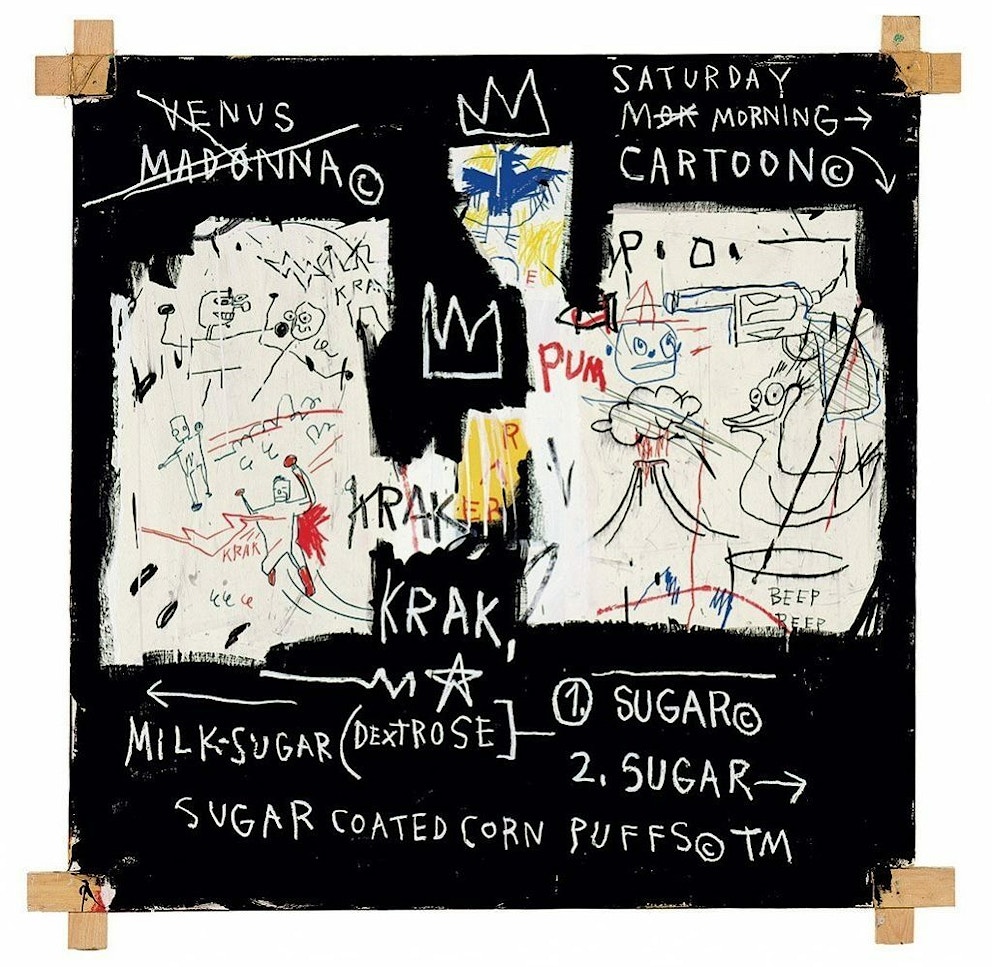 VENUS
MADONNA ©
SATURDAY
MOR MORNING →
CARTOON ©
KRA
E
P.O.
PUM
R
A
ER
KRAK
KRAK
KRAK,
BEEP
BEEP
MILK-SUGAR (DEXTROSE]
①. SUGAR ©
2. SUGAR →
SUGAR COATED CORN PUFFS © TM